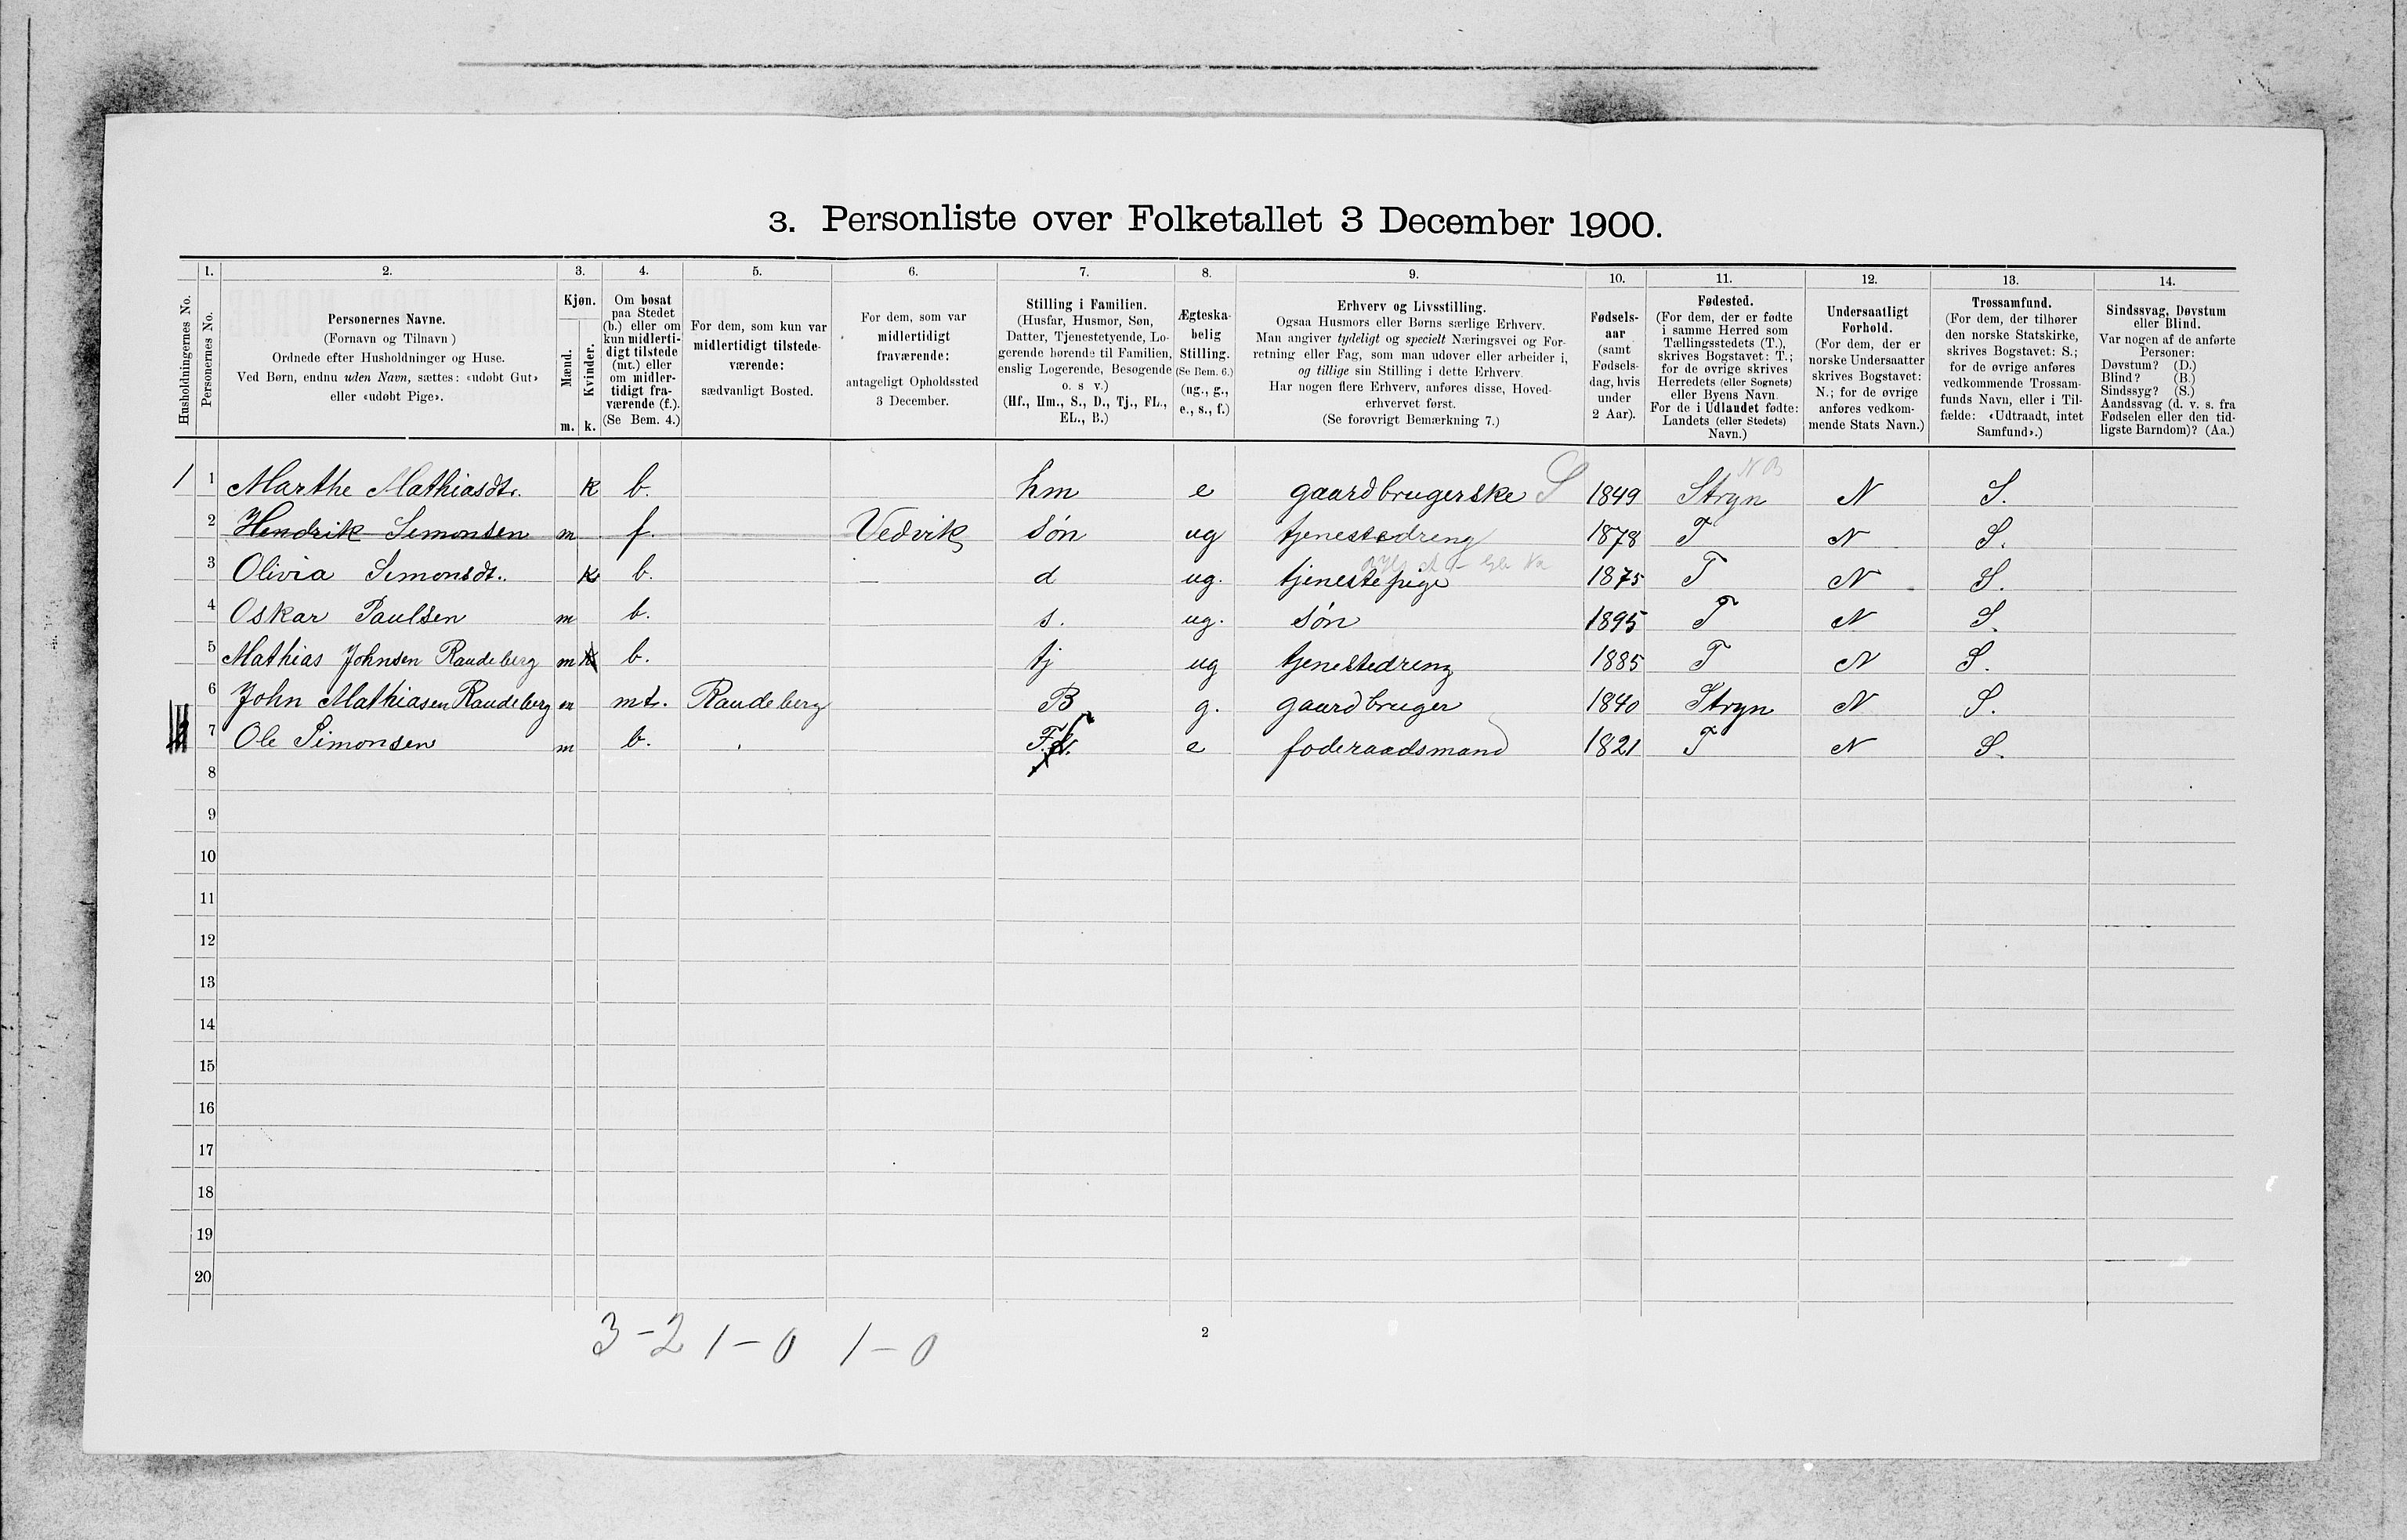 3. Personliste over Folketallet 3 December 1900.
Husholdningernes No.
1. Personernes No.
2. Personernes Navne.
(Fornavn og Tilnavn)
Ordnede efter Husholdninger og Huse.
Ved Børn, endnu uden Navn, sættes: «udøbt Gut»
eller «udøbt Pige».
3. Kjøn.
Mænd. Kvinder.
m. k.
4. Om bosat
paa Stedet
(b.) eller om
kun midlerti-
digt tilstede
(mt.) eller
om midler-
tidigt fra-
værende (f.).
(Se Bem. 4.)
5. For dem, som kun var
midlertidigt tilstede-
værende:
sædvanligt Bosted.
6. For dem, som var
midlertidigt
fraværende:
antageligt Opholdssted
3 December.
7. Stilling i Familien.
(Husfar, Husmor, Søn,
Datter, Tjenestetyende, Lo-
gerende hørende til Familien,
enslig Logerende, Besøgende
o. s v.)
(Hf., Hm., S., D., Tj., FL.,
EL., B.)
8. Ægteska-
belig
Stilling.
(Se Bem. 6.)
(ug., g.,
e., s., f.)
9. Erhverv og Livsstilling.
Ogsaa Husmors eller Børns særlige Erhverv.
Man angiver tydeligt og specielt Næringsvei og For-
retning eller Fag, som man udøver eller arbeider i,
og tillige sin Stilling i dette Erhverv.
Har nogen flere Erhverv, anføres disse, Hoved-
erhvervet først.
(Se forøvrigt Bemærkning 7.)
10. Fødsels-
aar
(samt
Fødsels-
dag, hvis
under
2 Aar).
11. Fødested.
(For dem, der er fødte
i samme Herred som
Tællingsstedets (T.),
skrives Bogstavet: T.;
for de øvrige skrives
Herredets (eller Sognets)
eller Byens Navn.
For de i Udlandet fødte:
Landets (eller Stedets)
Navn.)
12. Undersaatligt
Forhold.
(For dem, der er
norske Undersaatter
skrives Bogstavet:
N.; for de øvrige
anføres vedkom-
mende Stats Navn.)
13. Trossamfund.
(For dem, der tilhører
den norske Statskirke,
skrives Bogstavet: S.;
for de øvrige anføres
vedkommende Trossam-
funds Navn, eller i Til-
fælde: «Udtraadt, intet
Samfund».)
14. Sindssvag, Døvstum
eller Blind.
Var nogen af de anførte
Personer:
Døvstum? (D.)
Blind? (B.)
Sindssyg? (S.)
Aandssvag (d. v. s. fra
Fødselen eller den tid-
ligste Barndom)? (Aa.)
N B
1 1 Marthe Mathiasdtr. k b. hm e gaardbrugerske S 1849 Stryn N S.
2 Hendrik Simonsen m f. Vedvik søn ug tjenestedreng 1878 T N S.
3 Olivia Simonsdt. k b. d ug. tjenestepige 1875 T N S.
4 Oskar Paulsen m b. s. ug. søn 1895 T N S.
5 Mathias Johnsen Raudeberg m k b. tj ug tjenestedreng 1885 T N S.
6 John Mathiasen Raudeberg m mt. Raudeberg B g. gaardbruger 1840 Stryn N S.
7 Ole Simonsen m b. e foderaadsmand 1821 T N S.
8
9
10
11
12
13
14
15
16
17
18
19
20
3-2 1-0 1-0
2